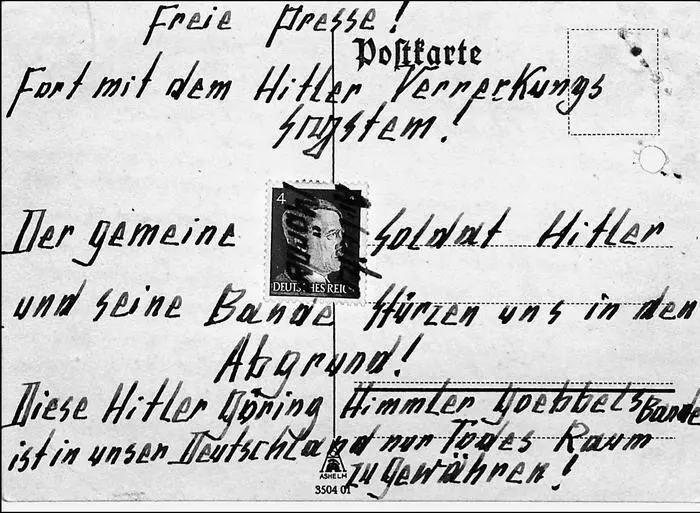 Freie Presse!
Postkarte
Fort mit dem Hitler Verreckungs
System!
4
DEUTSCHES REICH
Der gemeine Soldat Hitler
und seine Bande stürzen uns in den
Abgrund!
Diese Hitler Göring Himmler Goebbels Bande
ist in unser Deutschland nur Todes Raum
zu gewähren!
ASHELM
3504 01